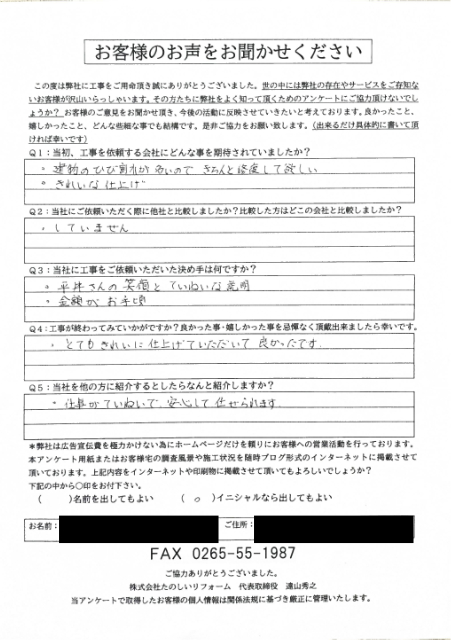 お客様のお声をお聞かせください
この度は弊社に工事をご用命頂き誠にありがとうございました。世の中には弊社の存在やサービスをご存知な
いお客様が沢山いらっしゃいます。その方たちに弊社をよく知って頂くためのアンケートにご協力頂けないでし
ょうか？ お客様のご意見をお聞かせ頂き、今後の活動に反映させていきたいと考えております。良かったこと、
嬉しかったこと、どんな些細な事でも結構です。是非ご協力をお願い致します。（出来るだけ具体的に書いて頂
ければ幸いです）
Q1：当初、工事を依頼する会社にどんな事を期待されていましたか？
・建物のひび割れが多いので きちんと修復して欲しい
・きれいな仕上げ
Q2：当社にご依頼いただく際に他社と比較しましたか？比較した方はどこの会社と比較しましたか？
・していません
Q3：当社に工事をご依頼いただいた決め手は何ですか？
・平井さんの笑顔とていねいな説明
・金額がお手頃
Q4：工事が終わってみていかがですか？良かった事・嬉しかった事を忌憚なく頂戴出来ましたら幸いです。
・とてもきれいに仕上げていただいて 良かったです。
Q5：当社を他の方に紹介するとしたらなんと紹介しますか？
・仕事がていねいで、安心して任せられます。
＊弊社は広告宣伝費を極力かけない為にホームページだけを頼りにお客様への営業活動を行っております。
本アンケート用紙またはお客様宅の調査風景や施工状況を随時ブログ形式のインターネットに掲載させて
頂いております。上記内容をインターネットや印刷物に掲載させて頂いてもよろしいでしょうか？
下記の中から〇印をお付下さい。
（　　）名前を出してもよい　　（ ○ ）イニシャルなら出してもよい
お名前： ご住所：
FAX 0265-55-1987
ご協力ありがとうございました。
株式会社たのしいリフォーム 代表取締役 遠山秀之
当アンケートで取得したお客様の個人情報は関係法規に基づき厳正に管理いたします。